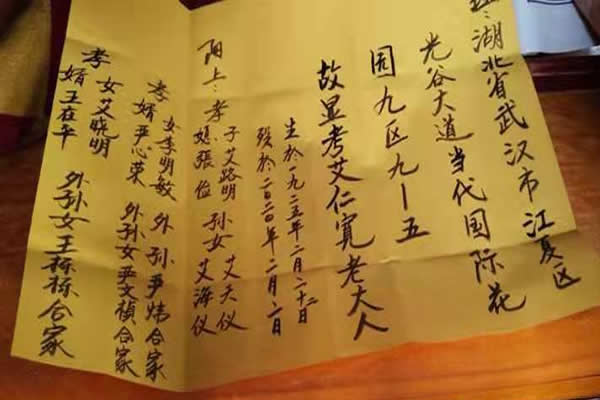 湖北省武汉市江夏区
光谷大道当代国际花
园九区九-五
故显考艾仁宽老大人
生於一九二五年二月二十二日
殁於二〇二〇年二月二日
阳上:孝子艾路明 孙女艾天仪
媳張俭 孙女艾海仪
女李明敏 外孙尹炜合家
孝婿尹心荣 外孙女尹文楨合家
孝女艾晓明
婿王在平 外孙女王栎栎合家